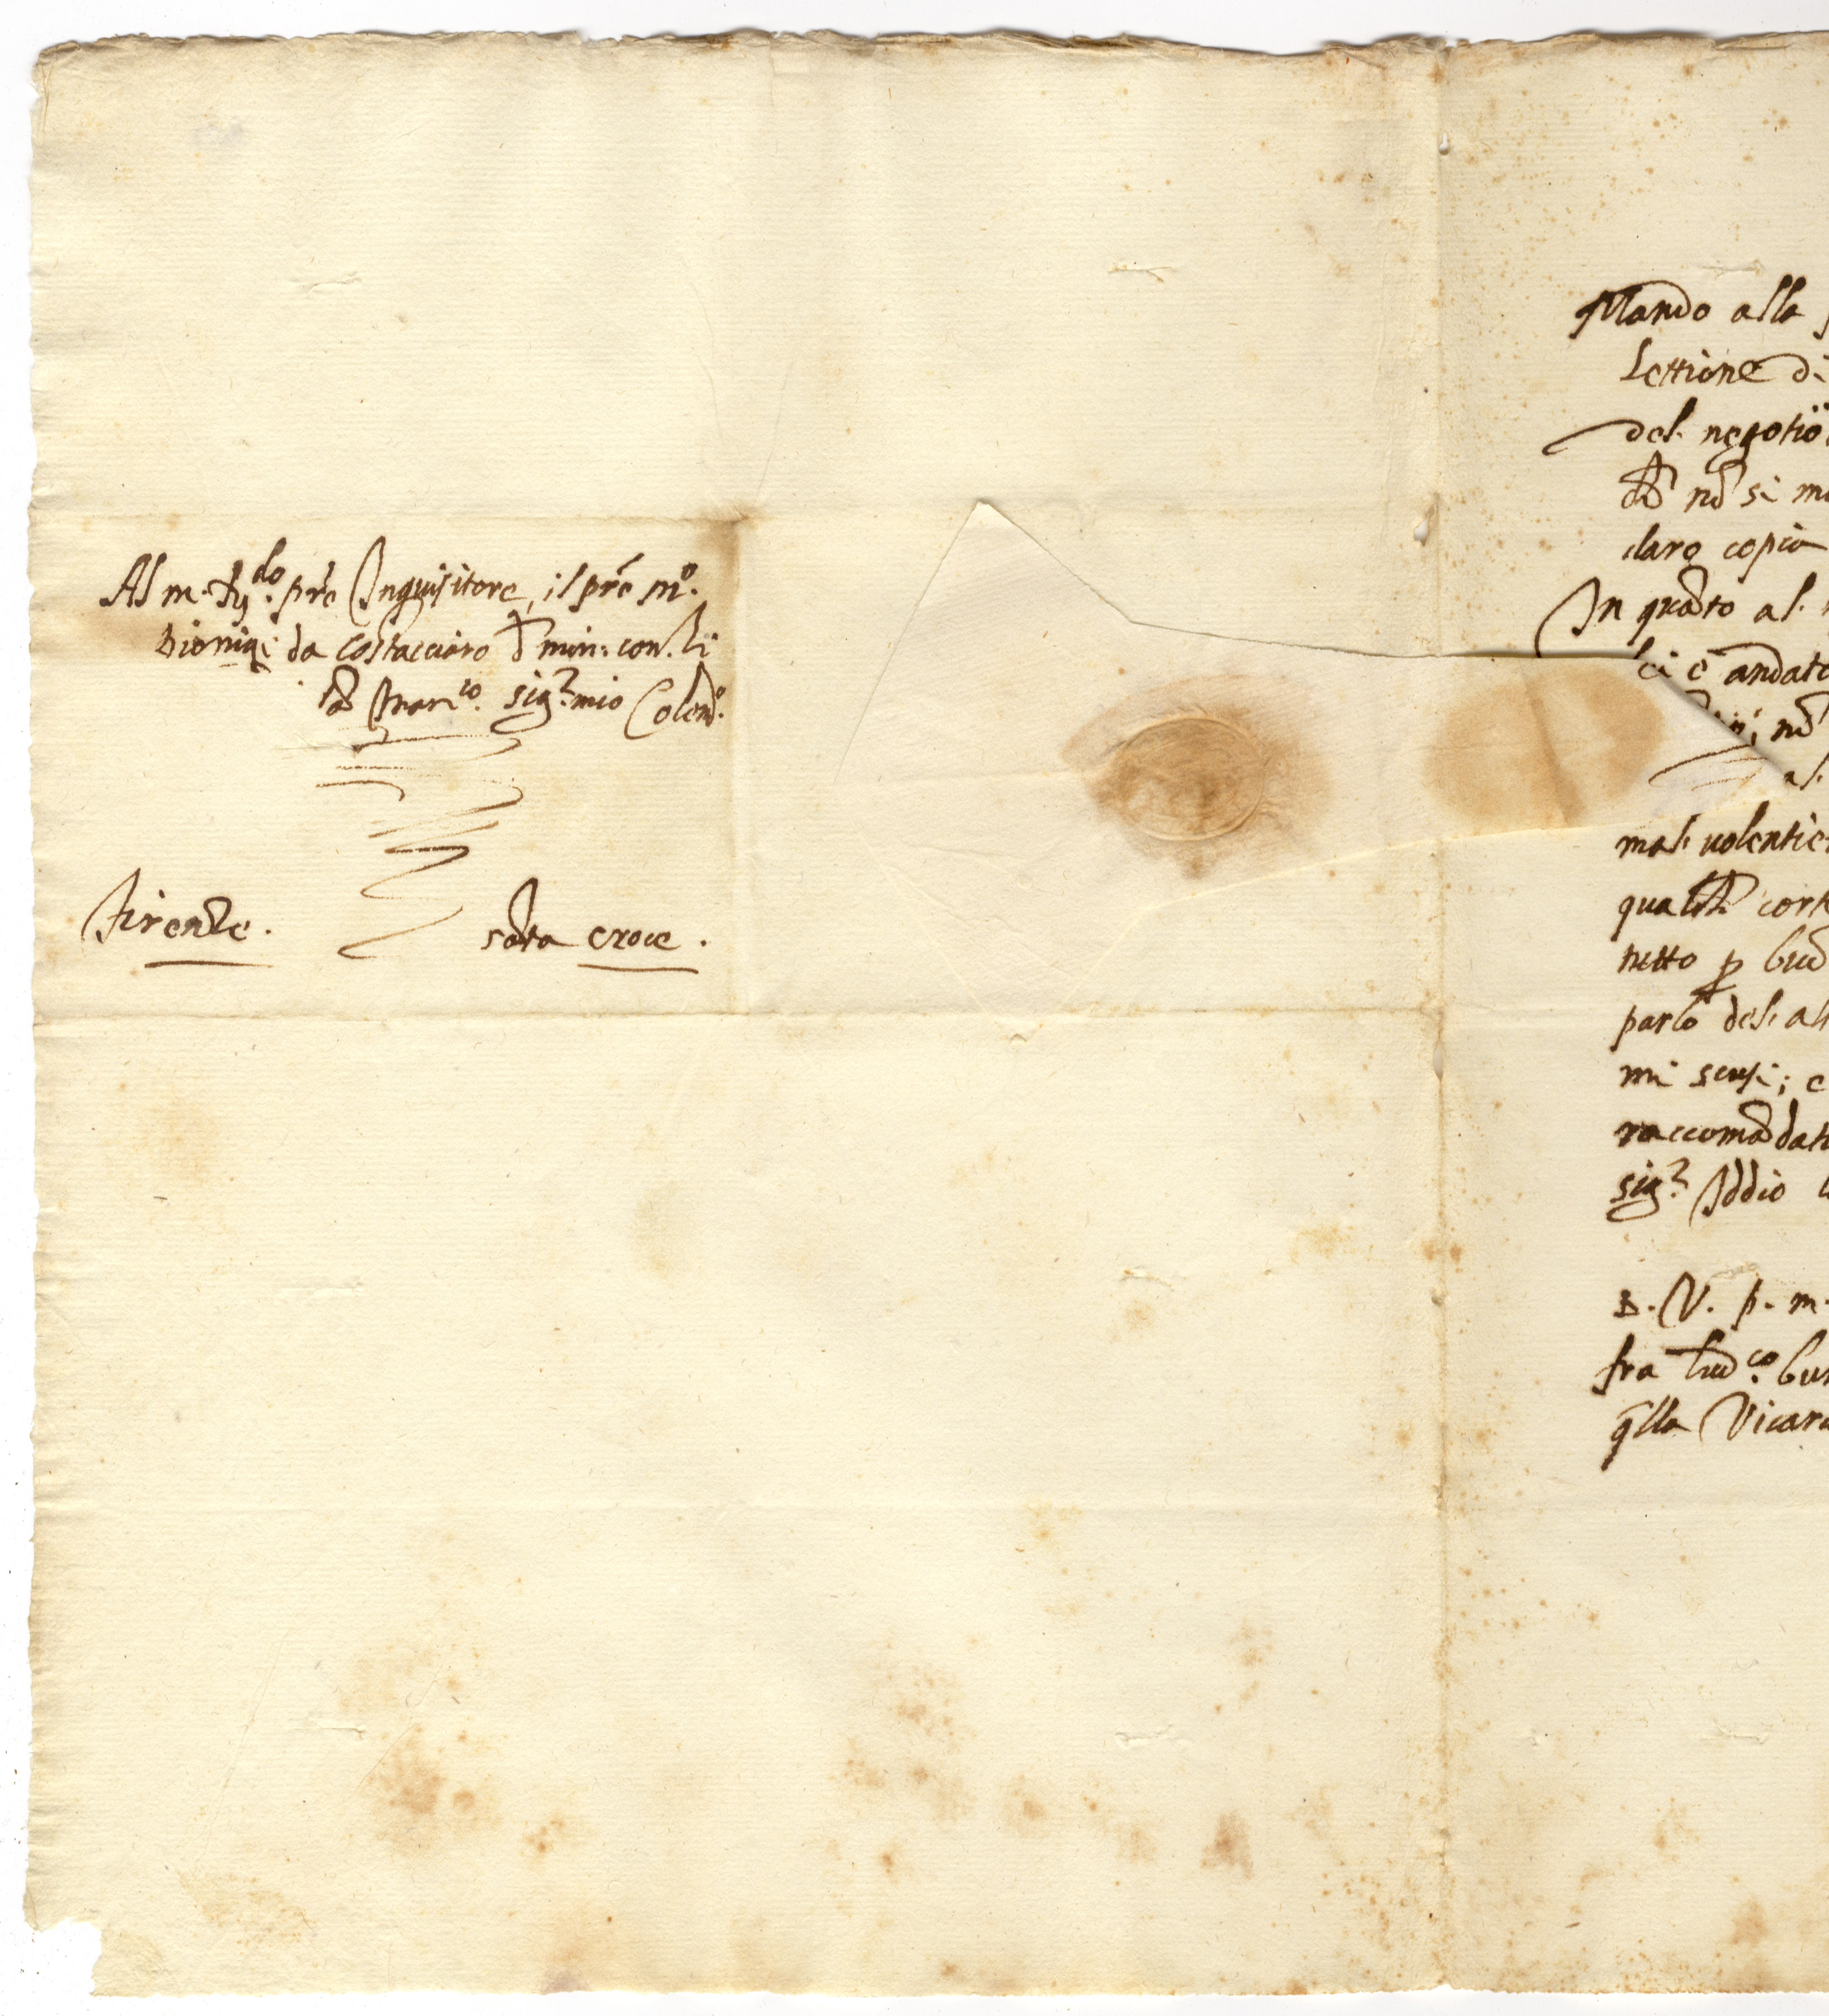 Al m. Rdo. pre Inquisitore, il pre mo.
Dionigi da Costacciaro d min: con.li
sig.r mio Colendo.
Firenze.
sāta croce.
Mando alla
lettione di
del. negotio
nō si
darq copia
In quāto al.
ci è andato
nō
al.
mal. volentie
cort
netto p
parlo del. alt
mi scusi; e
raccomādat
sig.r Iddio
D. V. p. m.
fra Ludco.
qlla Vicar